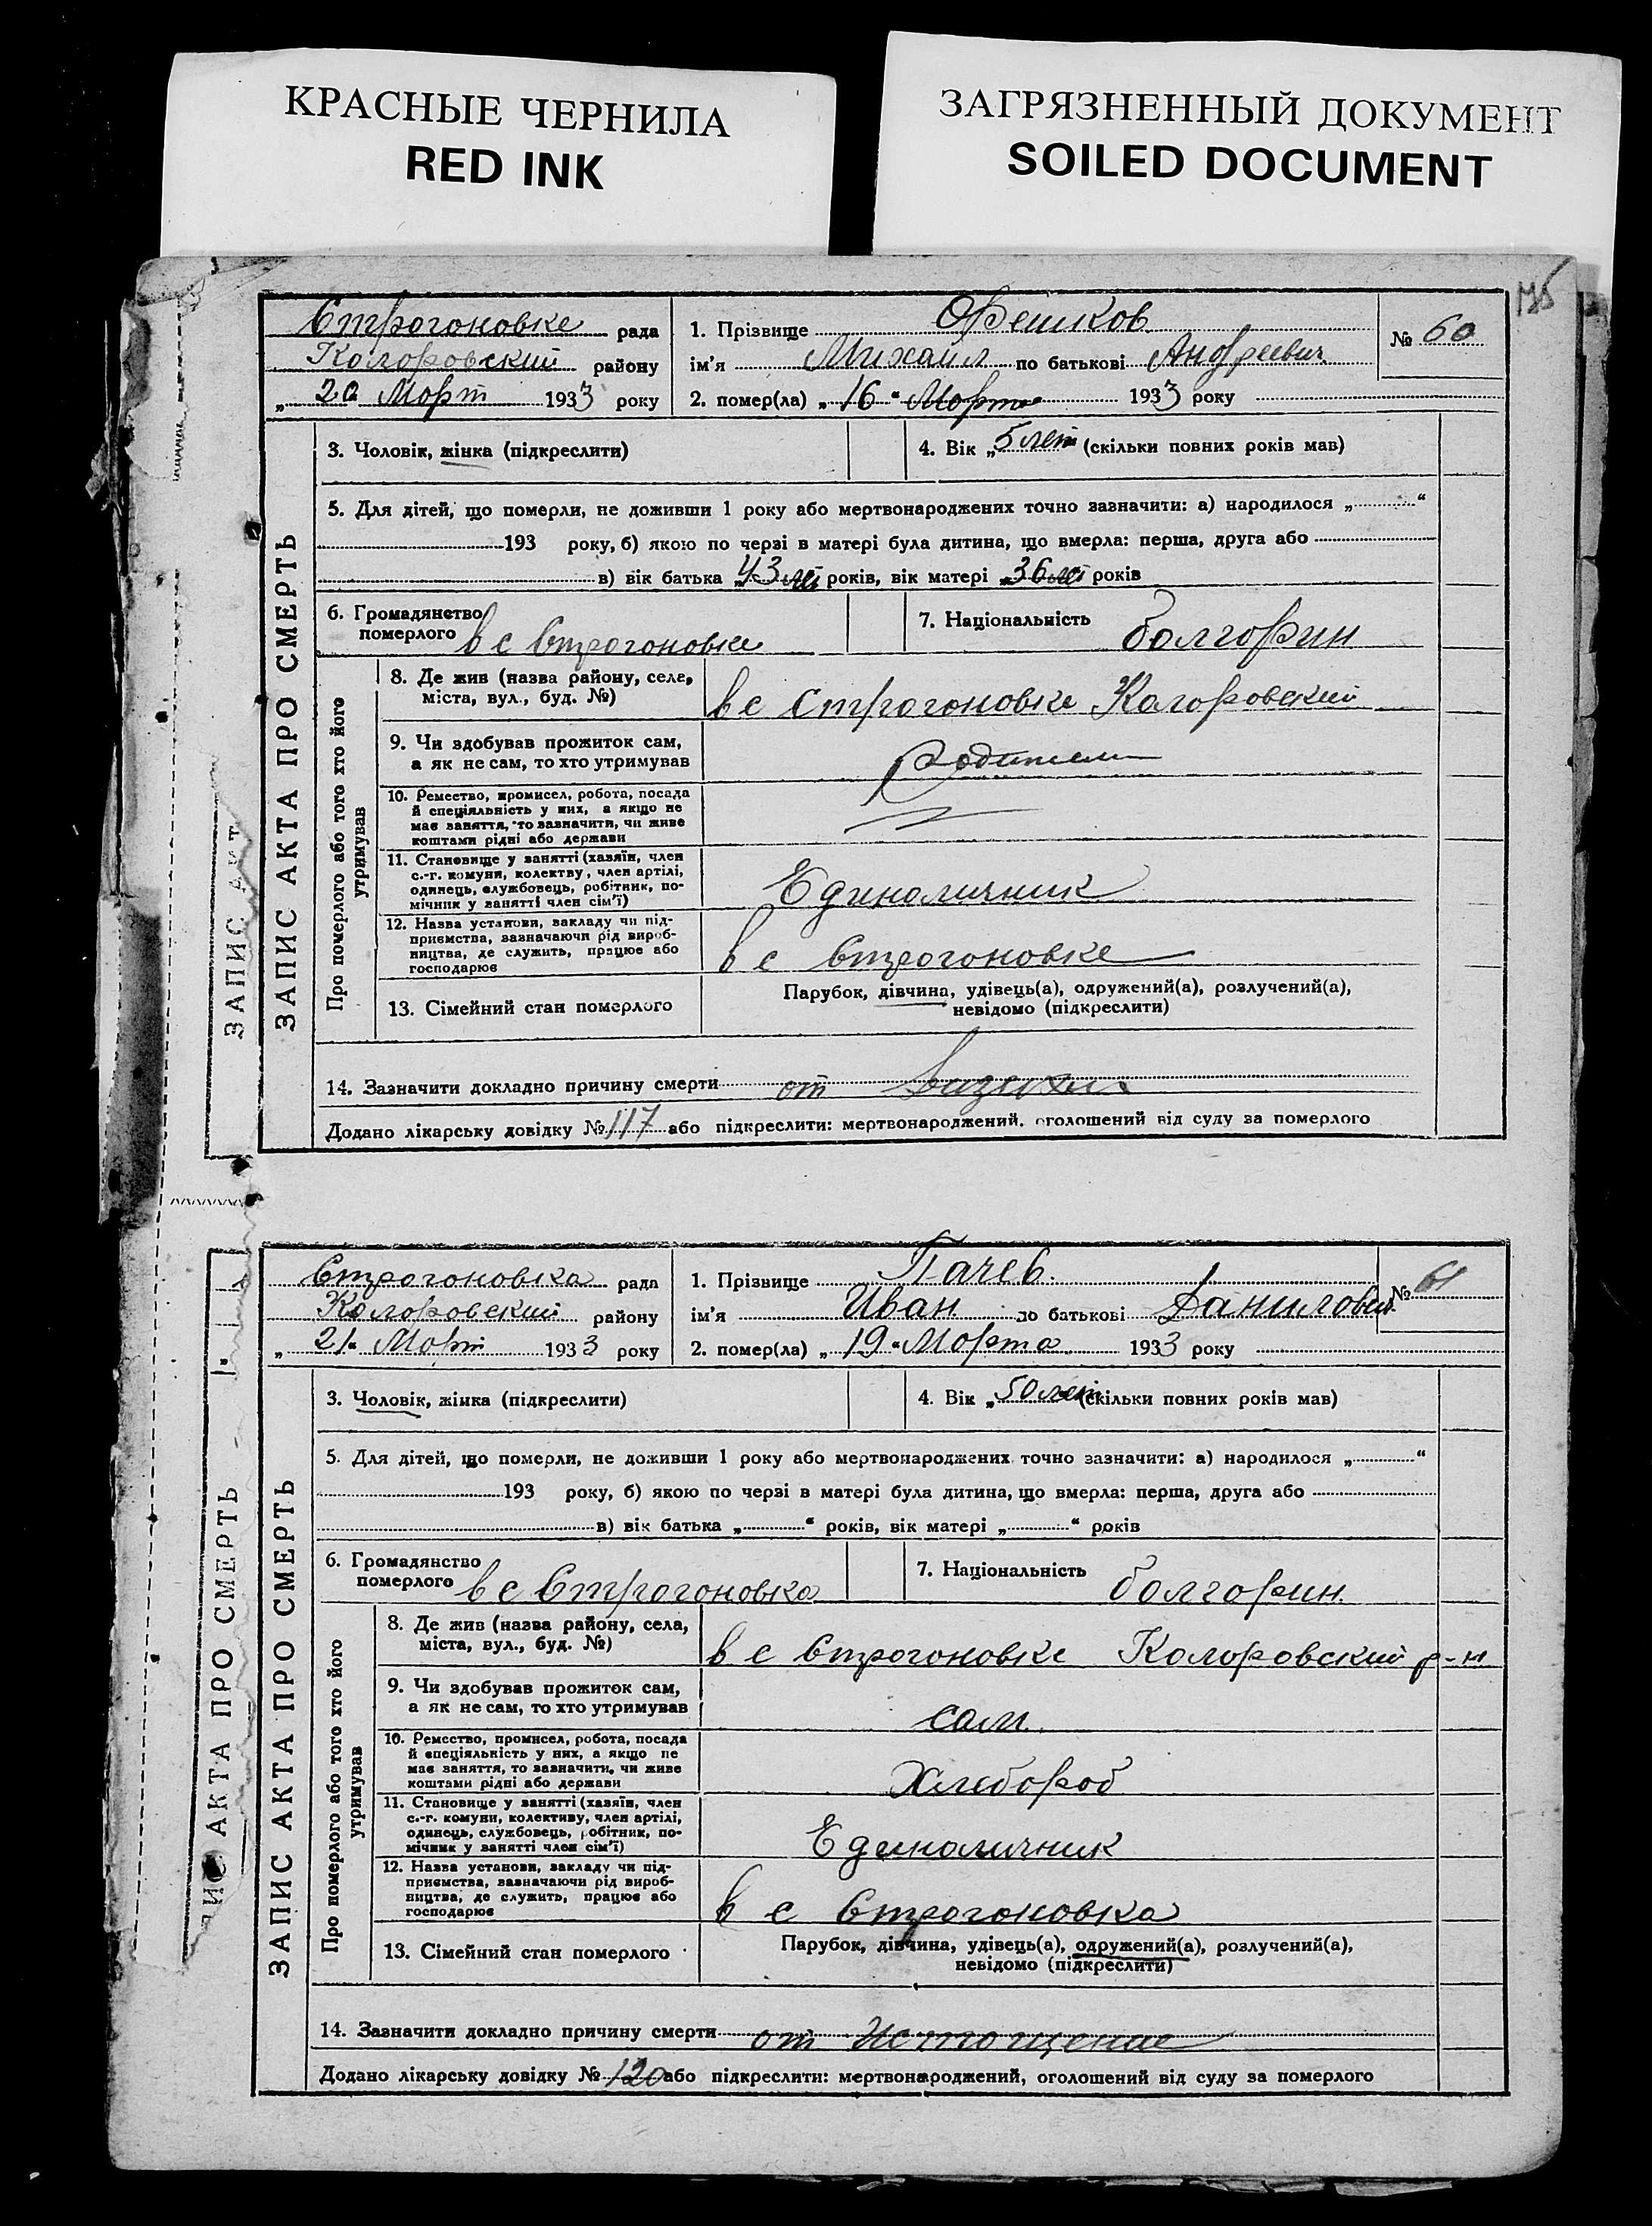 КРАСНЫЕ ЧЕРНИЛА
RED INK
ЗАГРЯЗНЕННЫЙ ДОКУМЕНТ
SOILED DOCUMENT
ЗАПИС АКТ
ЗАПИС АКТА ПРО СМЕРТЬ
Строгоновке рада
Коларовский району
„ 20 Март 1933 року
1. Прізвище Орешков
ім'я Михаил по батькові Андреевич
№ 60
2. помер(ла) „ 16 “ Марта 1933 року
3. Чоловік, жінка (підкреслити)
4. Вік „ 5 лет (скільки повних років мав)
5. Для дітей, що померли, не доживши 1 року або мертвонароджених точно зазначити: а) народилося „ “
193 року, б) якою по черзі в матері була дитина, що вмерла: перша, друга або
в) вік батька „ 43 лет років, вік матері „ 36 лет років
6. Громадянство
померлого в с Строгоновке
7. Національність болгорин
Про померлого або того хто його
утримував
8. Де жив (назва району, селе,
міста, вул., буд. №)
в с Строгоновке Коларовский
9. Чи здобував прожиток сам,
а як не сам, то хто утримував
Родители
10. Ремество, промисел, робота, посада
й спеціяльність у них, а якщо не
має заняття, то зазначити, чи живе
коштами рідні або держави
11. Становище у занятті (хазяїн, член
с.-г. комуни, колектву, член артілі,
одинець, службовець, робітник, по-
мічник у занятті член сім'ї)
Единоличник
12. Назва установи, закладу чи під-
приємства, зазначаючи рід вироб-
ництва, де служить, працює або
господарює
в с Строгоновке
13. Сімейний стан померлого
Парубок, дівчина, удівець(а), одружений(а), розлучений(а),
невідомо (підкреслити)
14. Зазначити докладно причину смерти от
Додано лікарську довідку № 117 або підкреслити: мертвонароджений, оголошений від суду за померлого
АКТА ПРО СМЕРТЬ
ЗАПИС АКТА ПРО СМЕРТЬ
Строгоновка рада
Коларовский району
„ 21 “ Март 1933 року
1. Прізвище Пачев.
ім'я Иван по батькові Данилович
№ 61
2. помер(ла) „ 19 “ Морта 1933 року
3. Чоловік, жінка (підкреслити)
4. Вік „ 50 лет (скільки повних років мав)
5. Для дітей, що померли, не доживши 1 року або мертвонароджених точно зазначити: а) народилося „ “
193 року, б) якою по черзі в матері була дитина, що вмерла: перша, друга або
в) вік батька „ “ років, вік матері „ “ років
6. Громадянство
померлого в с Строгоновка
7. Національність болгорин.
Про померлого або того хто його
утримував
8. Де жив (назва району, села,
міста, вул., буд. №)
в с Строгоновке Коларовский р-н
9. Чи здобував прожиток сам,
а як не сам, то хто утримував
сам.
10. Ремество, промисел, робота, посада
й спеціяльність у них, а якщо не
має заняття, то зазначити, чи живе
коштами рідні або держави
Хлебороб
11. Становище у занятті (хазяїн, член
с.-г. комуни, колективу, член артілі,
одинець, службовець, робітник, по-
мічник у занятті член сім'ї)
Единоличник
12. Назва установи, закладу чи під-
приємства, зазначаючи рід вироб-
ництва, де служить, працює або
господарює
в с Строгоновка
13. Сімейний стан померлого
Парубок, дівчина, удівець(а), одружений(а), розлучений(а),
невідомо (підкреслити)
14. Зазначити докладно причину смерти от Истощение
Додано лікарську довідку № 120 або підкреслити: мертвонароджений, оголошений від суду за померлого